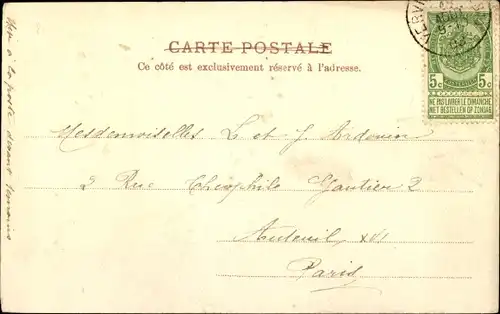 CARTE POSTALE
Ce côté est exclusivement réservé à l'adresse.
5c 5c
NE PAS LIVRER LE DIMANCHE
NIET BESTELLEN OP ZONDAG
Mesdemoiselles L et J Ardouin
2 Rue Théophile Gautier 2
Auteuil XVI
Paris
Mise à la poste devant